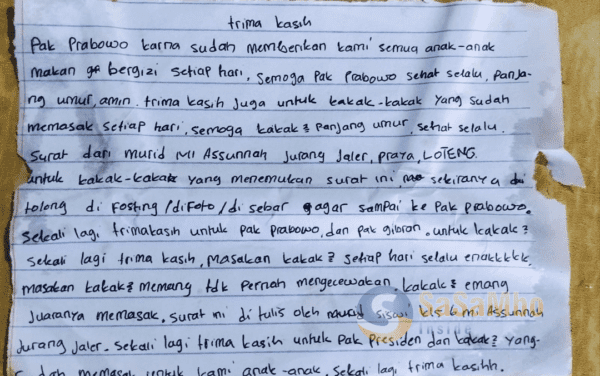 trima kasih
Pak Prabowo karna sudah memberikan kami semua anak-anak
makan bergizi setiap hari, semoga Pak Prabowo sehat selalu, panja-
ng umur, amin. trima kasih juga untuk kakak-kakak yang sudah
memasak setiap hari, semoga kakak² panjang umur, sehat selalu.
Surat dari murid MI Assunnah Jurang Jaler, Praya, LOTENG.
untuk kakak-kakak yang menemukan surat ini, sekiranya di
tolong di Fosting/diFoto/di sebar agar sampai ke Pak Prabowo.
Sekali lagi trimakasih untuk Pak Prabowo, dan pak gibran. untuk kakak²
sekali lagi trima kasih, masakan kakak² setiap hari selalu enakkkkk,
masakan kakak² memang tdk Pernah mengecewakan. kakak² emang
Juaranya memasak. surat ini di tulis oleh siswi kls 6 mi Assunnah
Jurang Jaler. Sekali lagi trima kasih untuk Pak Presiden dan kakak² yang-
memasak untuk kami anak-anak. Sekali lagi trima kasihh.
SaSaMbo
Inside